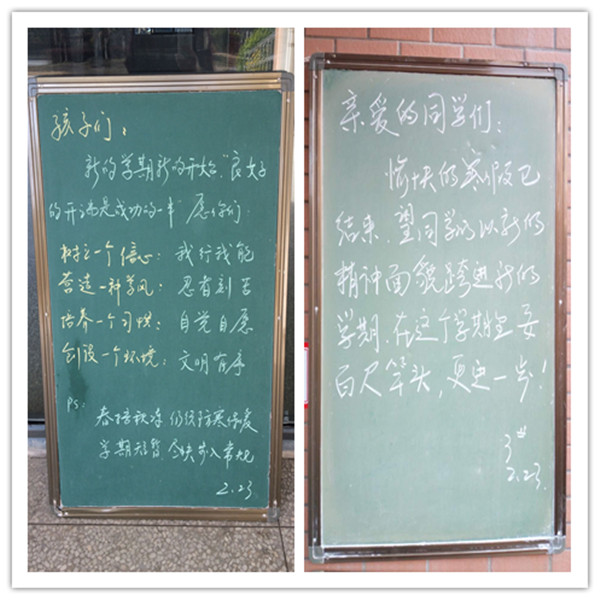 孩子们：
新的学期新的开始，“良好
的开端是成功的一半”愿你们：
树立一个信心：我行我能
营造一种学风：忍者刻苦
培养一个习惯：自觉自愿
创设一个环境：文明有序
PS：
春暖乍冷 仍须防寒保暖
学期始暂 尽快步入常规
2.23
亲爱的同学们：
愉快的寒假已
结束，望同学们以新的
精神面貌跨进新的
学期，在这个学期里要
百尺竿头，更进一步！
2.23.